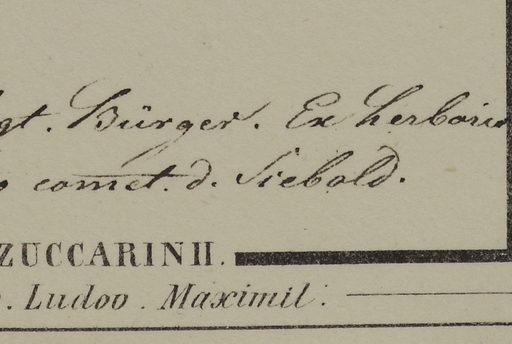 gt. Bürger. Ex herbario
comet. d. Siebold.
ZUCCARINII.
. Ludov. Maximil: